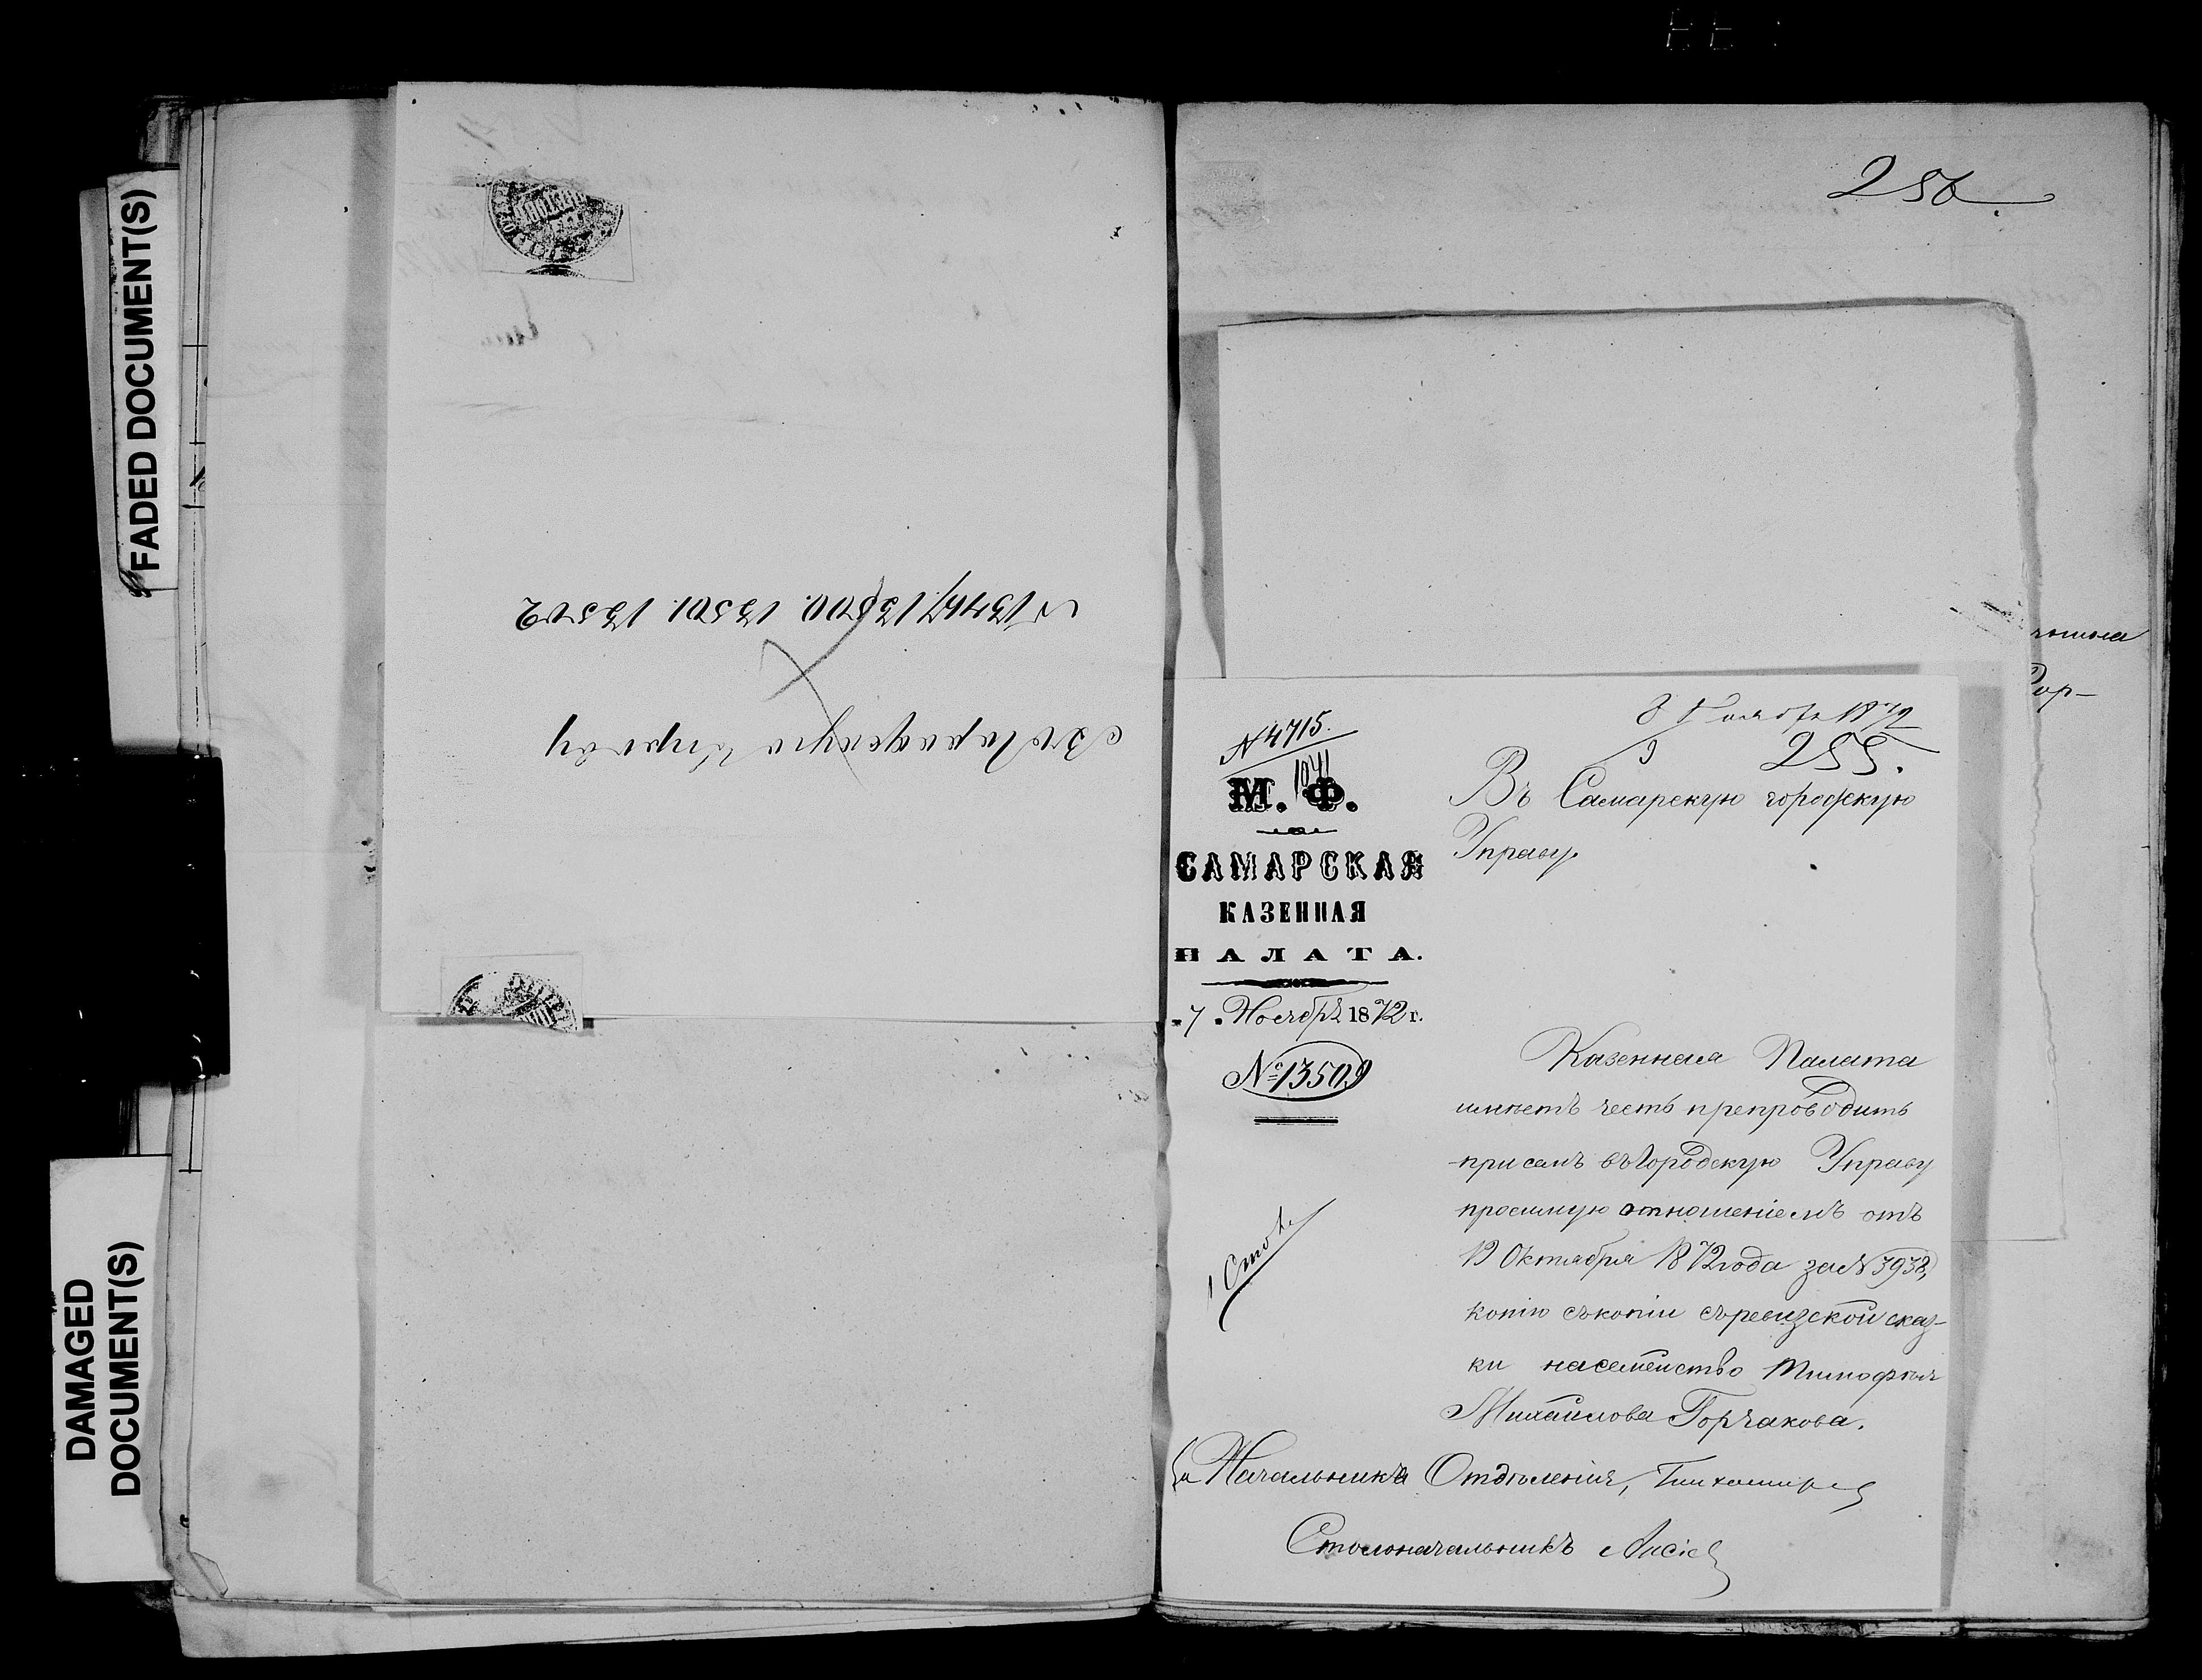 FADED DOCUMENT(S)
DAMAGED
DOCUMENT(S)
Въ Городскую Управу
N 13467, 13500. 13501. 13502
256
N 4715.
1041
М. Ф.
САМАРСКАЯ
КАЗЕННАЯ
ПАЛАТА.
„7„ Ноября 1872 г.
№ 13509
1 Стол
8 Ноября 1872
255.
Въ Самарскую городскую
Управу.
Казенная Палата
имѣетъ честь препроводить
присемъ въ Городскую Управу
просимую отношеніемъ отъ
19 Октября 1872 года за N 3938,
копію съ копіи съ ревизской сказ-
ки на семейство Тимофѣя
Михайлова Горчакова.
За Начальника Отдѣленія, Тихомиров
Столоначальникъ
Гор-